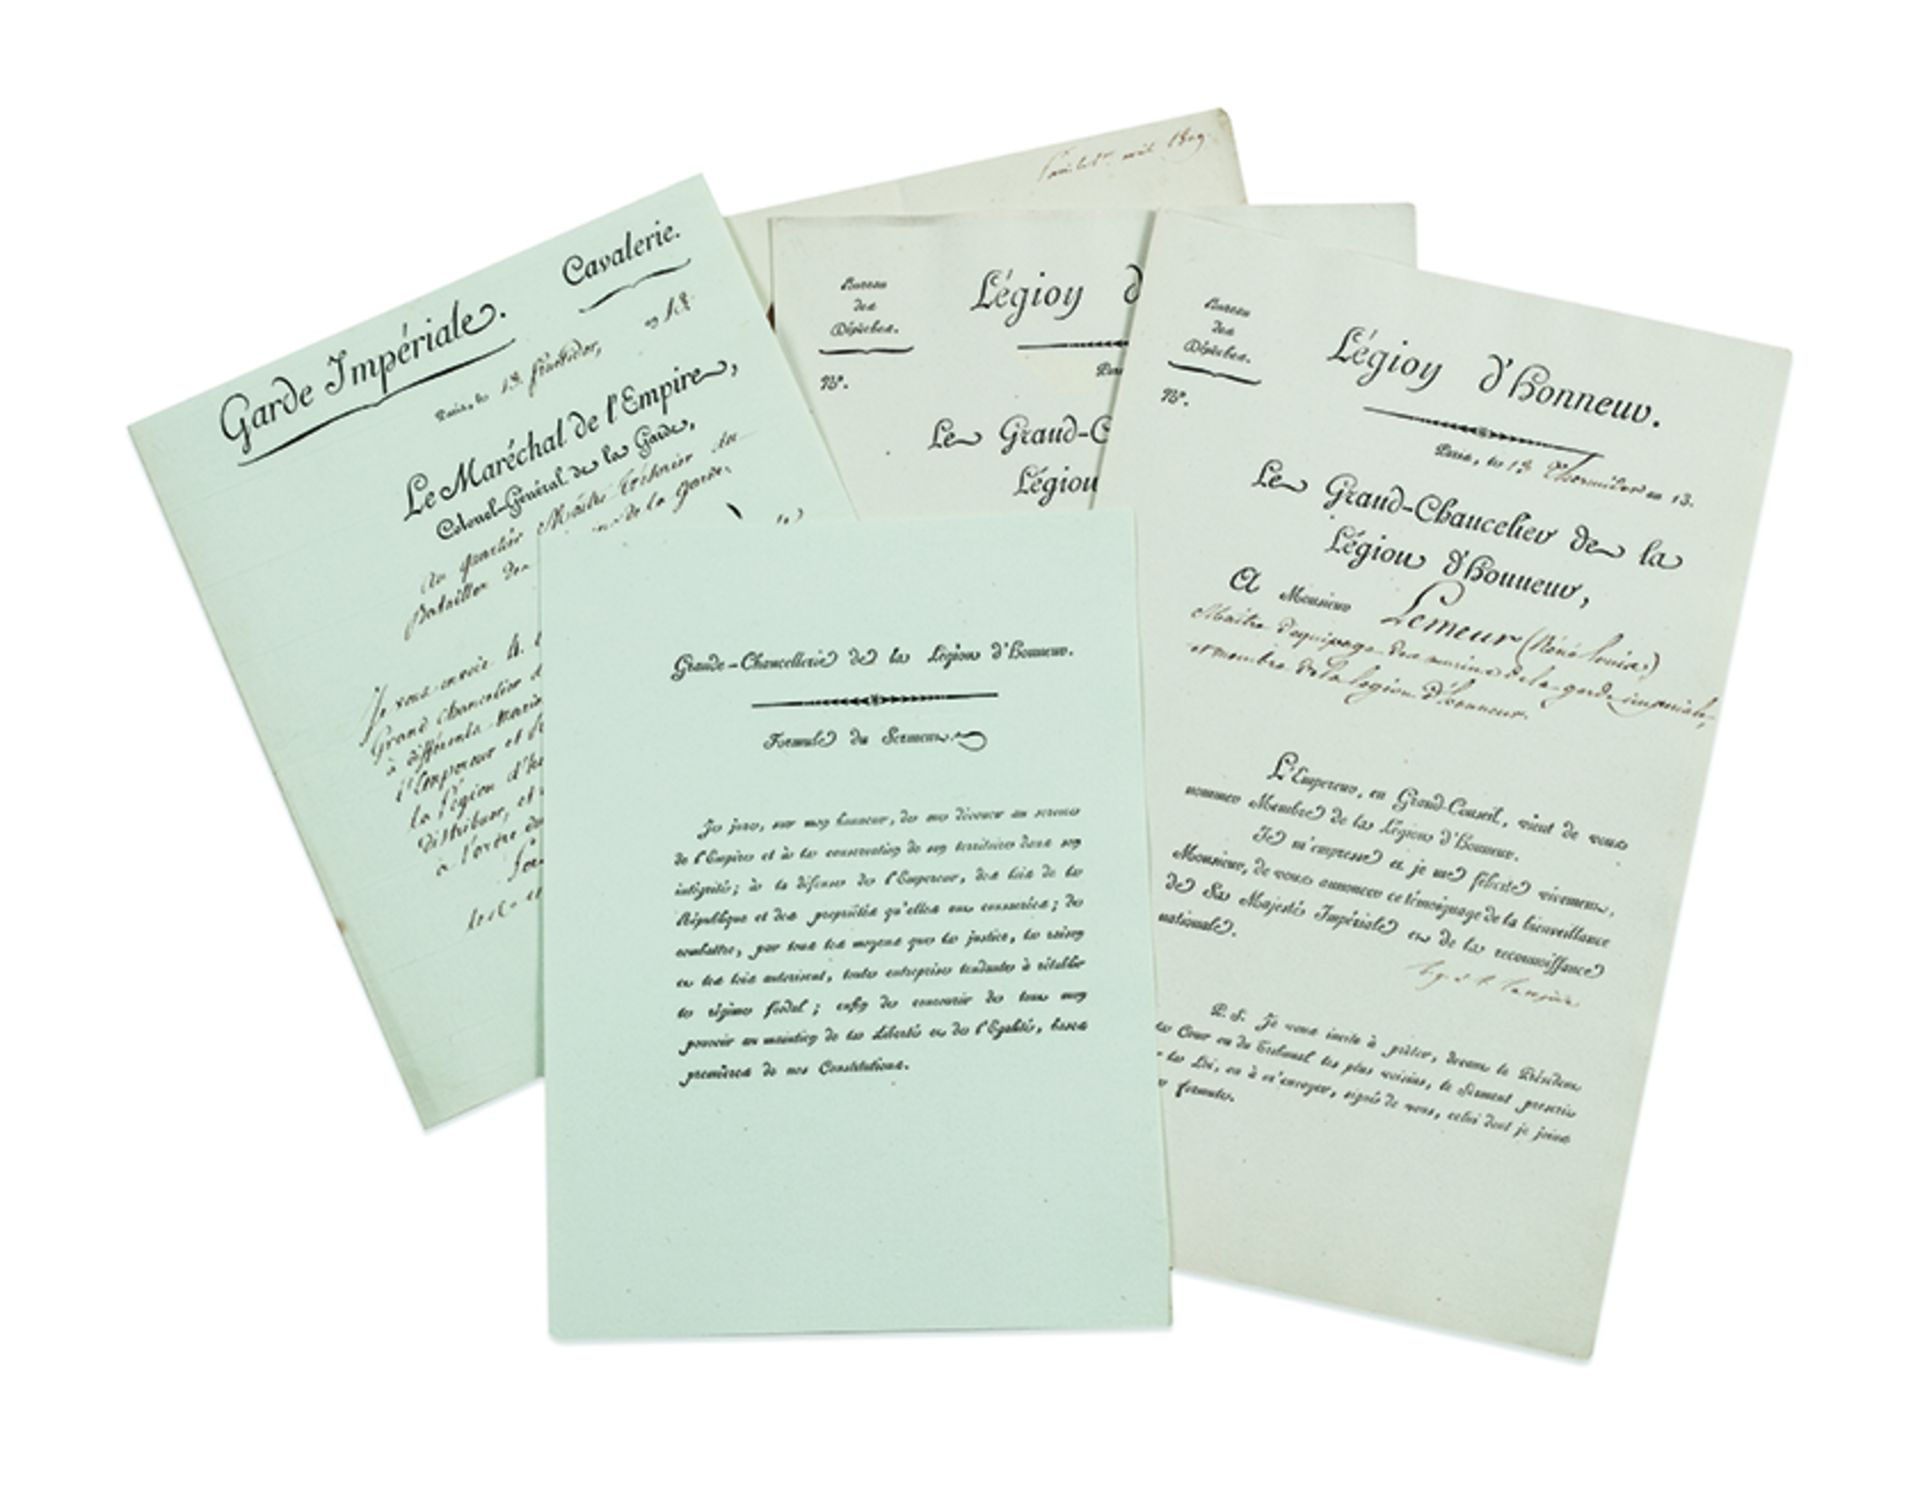 Garde Impériale.
Cavalerie.
Paris, le 18 fructidor, an 13
Le Maréchal de l'Empire,
Colonel-Général de la Garde,
Au quartier Maître trésorier du
Bataillon des
de la Garde.
Je vous envoie
Grand Chancelier
à différents marins
l'Empereur et
la Légion d'h
distribuer, et
à l'ordre du
1809
Bureau
des
Dépêches.
N°.
Légion d
Le Grand-C
Légion
Bureau
des
Dépêches.
N°.
Légion d'honneur.
Paris, le 13 Thermidor an 13.
Le Grand-Chancelier de la
Légion d'honneur,
A Monsieur Lemeur (René Louis)
Maître d'équipage des marins de la garde impériale,
et membre de la légion d'honneur.
L'Empereur, en Grand-Conseil, vient de vous
nommer Membre de la Légion d'honneur.
Je m'empresse et je me félicite vivement,
Monsieur, de vous annoncer ce témoignage de la bienveillance
de Sa Majesté Impériale et de la reconnoissance
nationale.
P. S. Je vous invite à prêter, devant le Président
Cour ou du Tribunal le plus voisin, le Serment prescrit
la Loi, ou à m'envoyer, signée de vous, celui dont je joins
formule.
Grande-Chancellerie de la Légion d'honneur.
Formule du Serment.
Je jure, sur mon honneur, de me dévouer au service
de l'Empire et à la conservation de son territoire dans son
intégrité; à la défense de l'Empereur, des lois de la
République et des propriétés qu'elles ont consacrées; de
combattre, par tous les moyens que la justice, la raison
et les lois autorisent, toute entreprise tendante à rétablir
le régime féodal; enfin de concourir de tout mon
pouvoir au maintien de la Liberté et de l'Egalité, bases
premières de nos Constitutions.